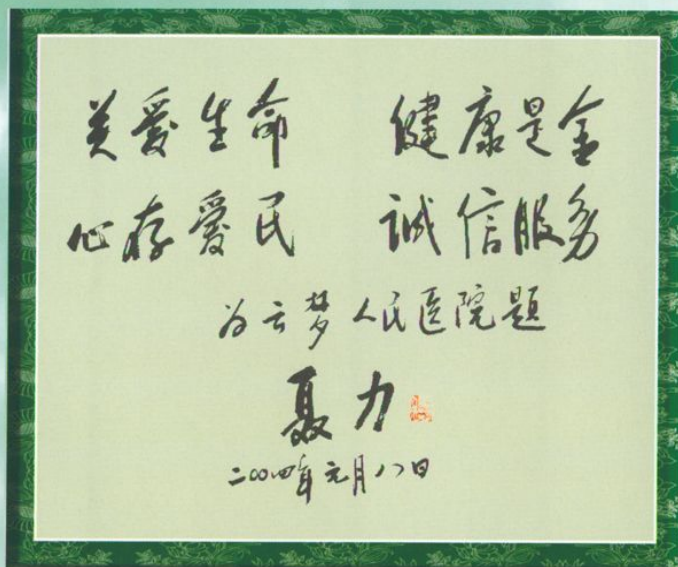 关爱生命 健康是金
心存爱民 诚信服务
为云梦人民医院题
聂力
二〇〇四年元月八日